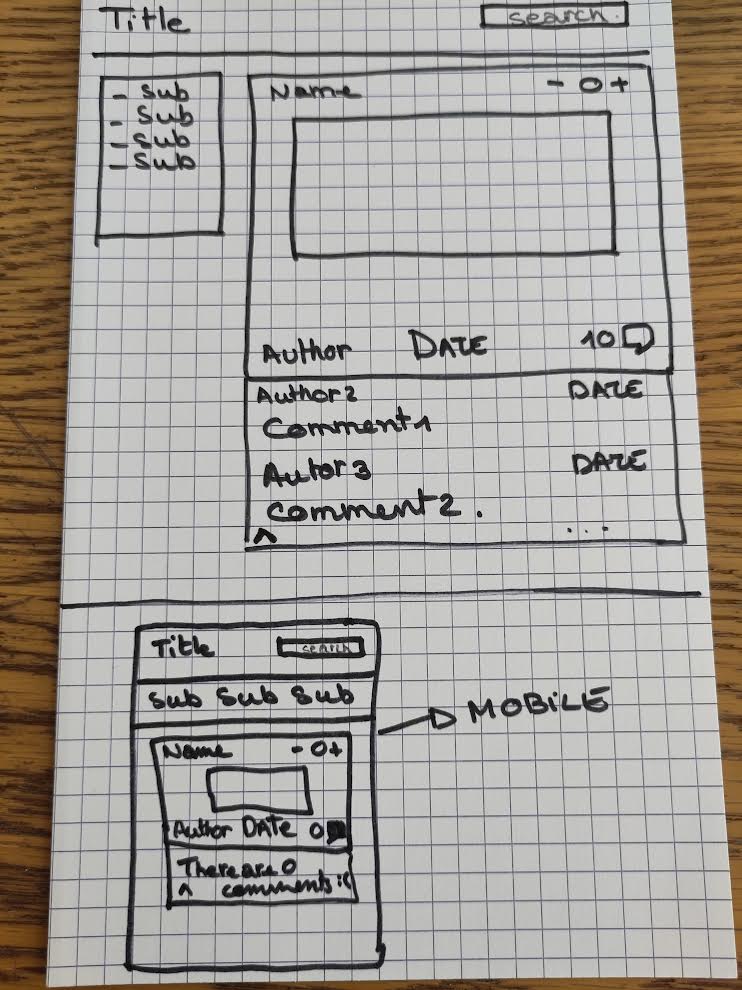 Title search.
- Sub
- Sub
- Sub
- Sub
Name - 0 +
Author DATE 10
Author2 DATE
Comment1
Autor3 DATE
Comment2.
^ ...
Title search
Sub Sub Sub
MOBILE
Name - 0 +
Author DATE 0
There are 0
^ comments :(